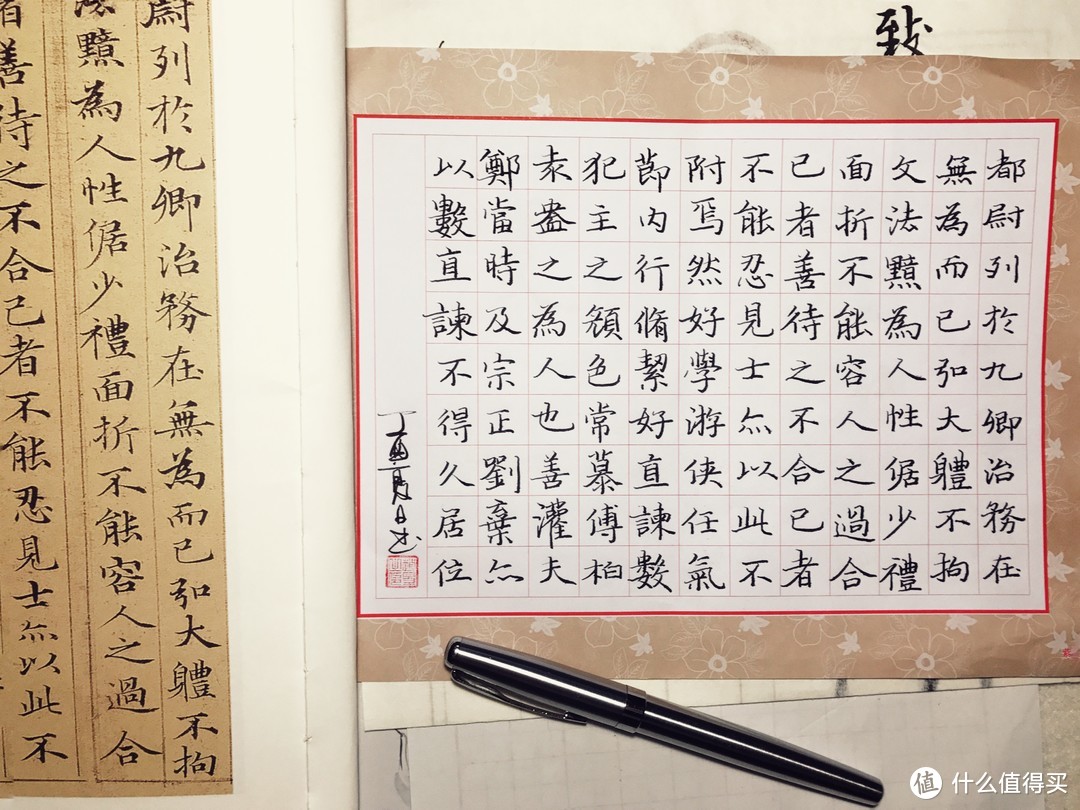 致
都尉列於九卿治務在
無為而已弘大軆不拘
文法黯為人性倨少禮
面折不能容人之過合
己者善待之不合己者
不能忍見士亦以此不
附焉然好學游俠任氣
節内行脩絜好直諫數
犯主之顏色常慕傅柏
袁盎之為人也善灌夫
鄭當時及宗正劉棄亦
以數直諫不得久居位
丁酉夏日书
尉列於九卿治務在無為而已弘大軆不拘
法黯為人性倨少禮面折不能容人之過合
者善待之不合己者不能忍見士亦以此不
值 什么值得买